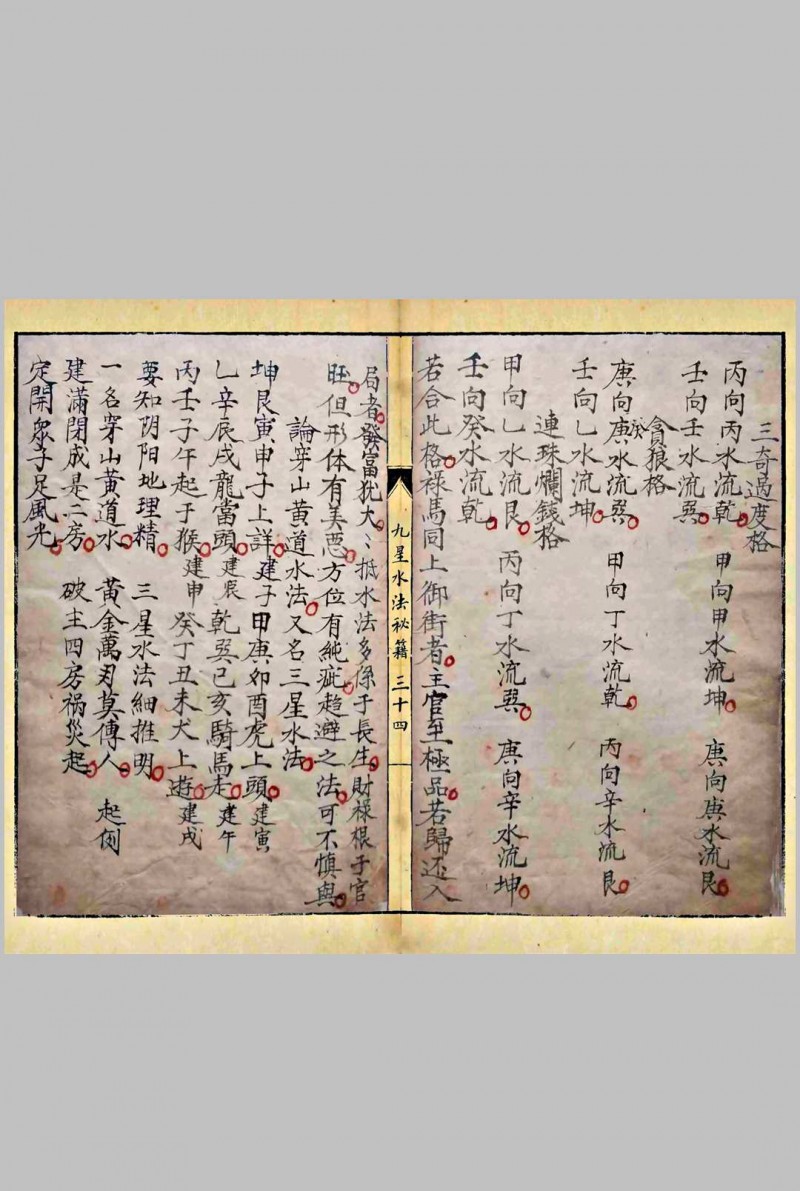 三奇過度格
丙向丙水流乾　甲向甲水流坤　庚向庚水流艮
壬向壬水流巽
貪狼格
庚向庚水流巽　甲向丁水流乾　丙向辛水流艮
壬向乙水流坤
連珠爛錢格
甲向乙水流艮　丙向丁水流巽　庚向辛水流坤
壬向癸水流乾
若合此格祿馬同上御街者主官至極品若歸还入
九星水法祕籍　三十四
局者發富犹大〻抵水法多係于長生財祿根于官
旺但形体有美惡方位有純疵趋避之法可不慎與
論穿山黄道水法又名三星水法
坤艮寅申子上詳建子甲庚卯酉虎上頭建寅
乙辛辰戌龍當頭建辰乾巽巳亥騎馬走建午
丙壬子午起于猴建申癸丁丑未犬上遊建戌
要知阴阳地理精　三星水法細推明
一名穿山黄道水　黄金萬刃莫傳人　起例
建滿閉成是二房　破主四房禍災起
定開衆子足風光